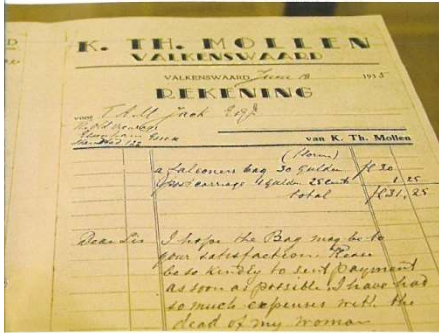 K. TH. MOLLEN
VALKENSWAARD
VALKENSWAARD, June 18 1935
REKENING
voor T.A.M. Jack Esq.
The old vicarage
Elsenham Essex
Stansted 122
van K. Th. Mollen
a falconers bag 30 gulden fl 30
carriage 1 gulden 25 cents 1.25
total fl 31,25
Dear Sir I hope the Bag may be to
your satisfaction. Please
be so kindly to sent payment
as soon as possible. I have had
so much expenses with the
dead of my woman